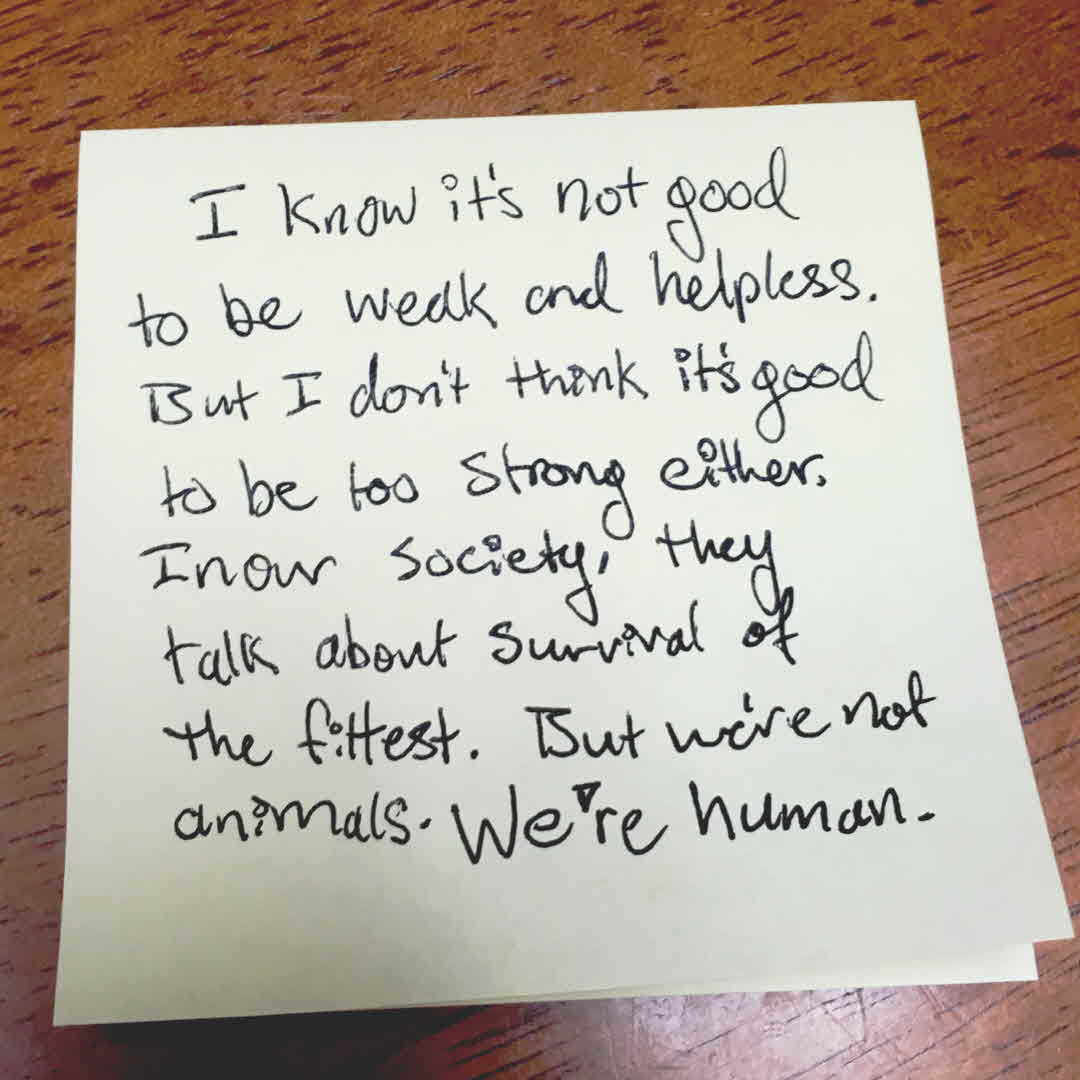 I know it's not good
to be weak and helpless.
But I don't think it's good
to be too strong either.
In our society, they
talk about survival of
the fittest. But we're not
animals. We're human.